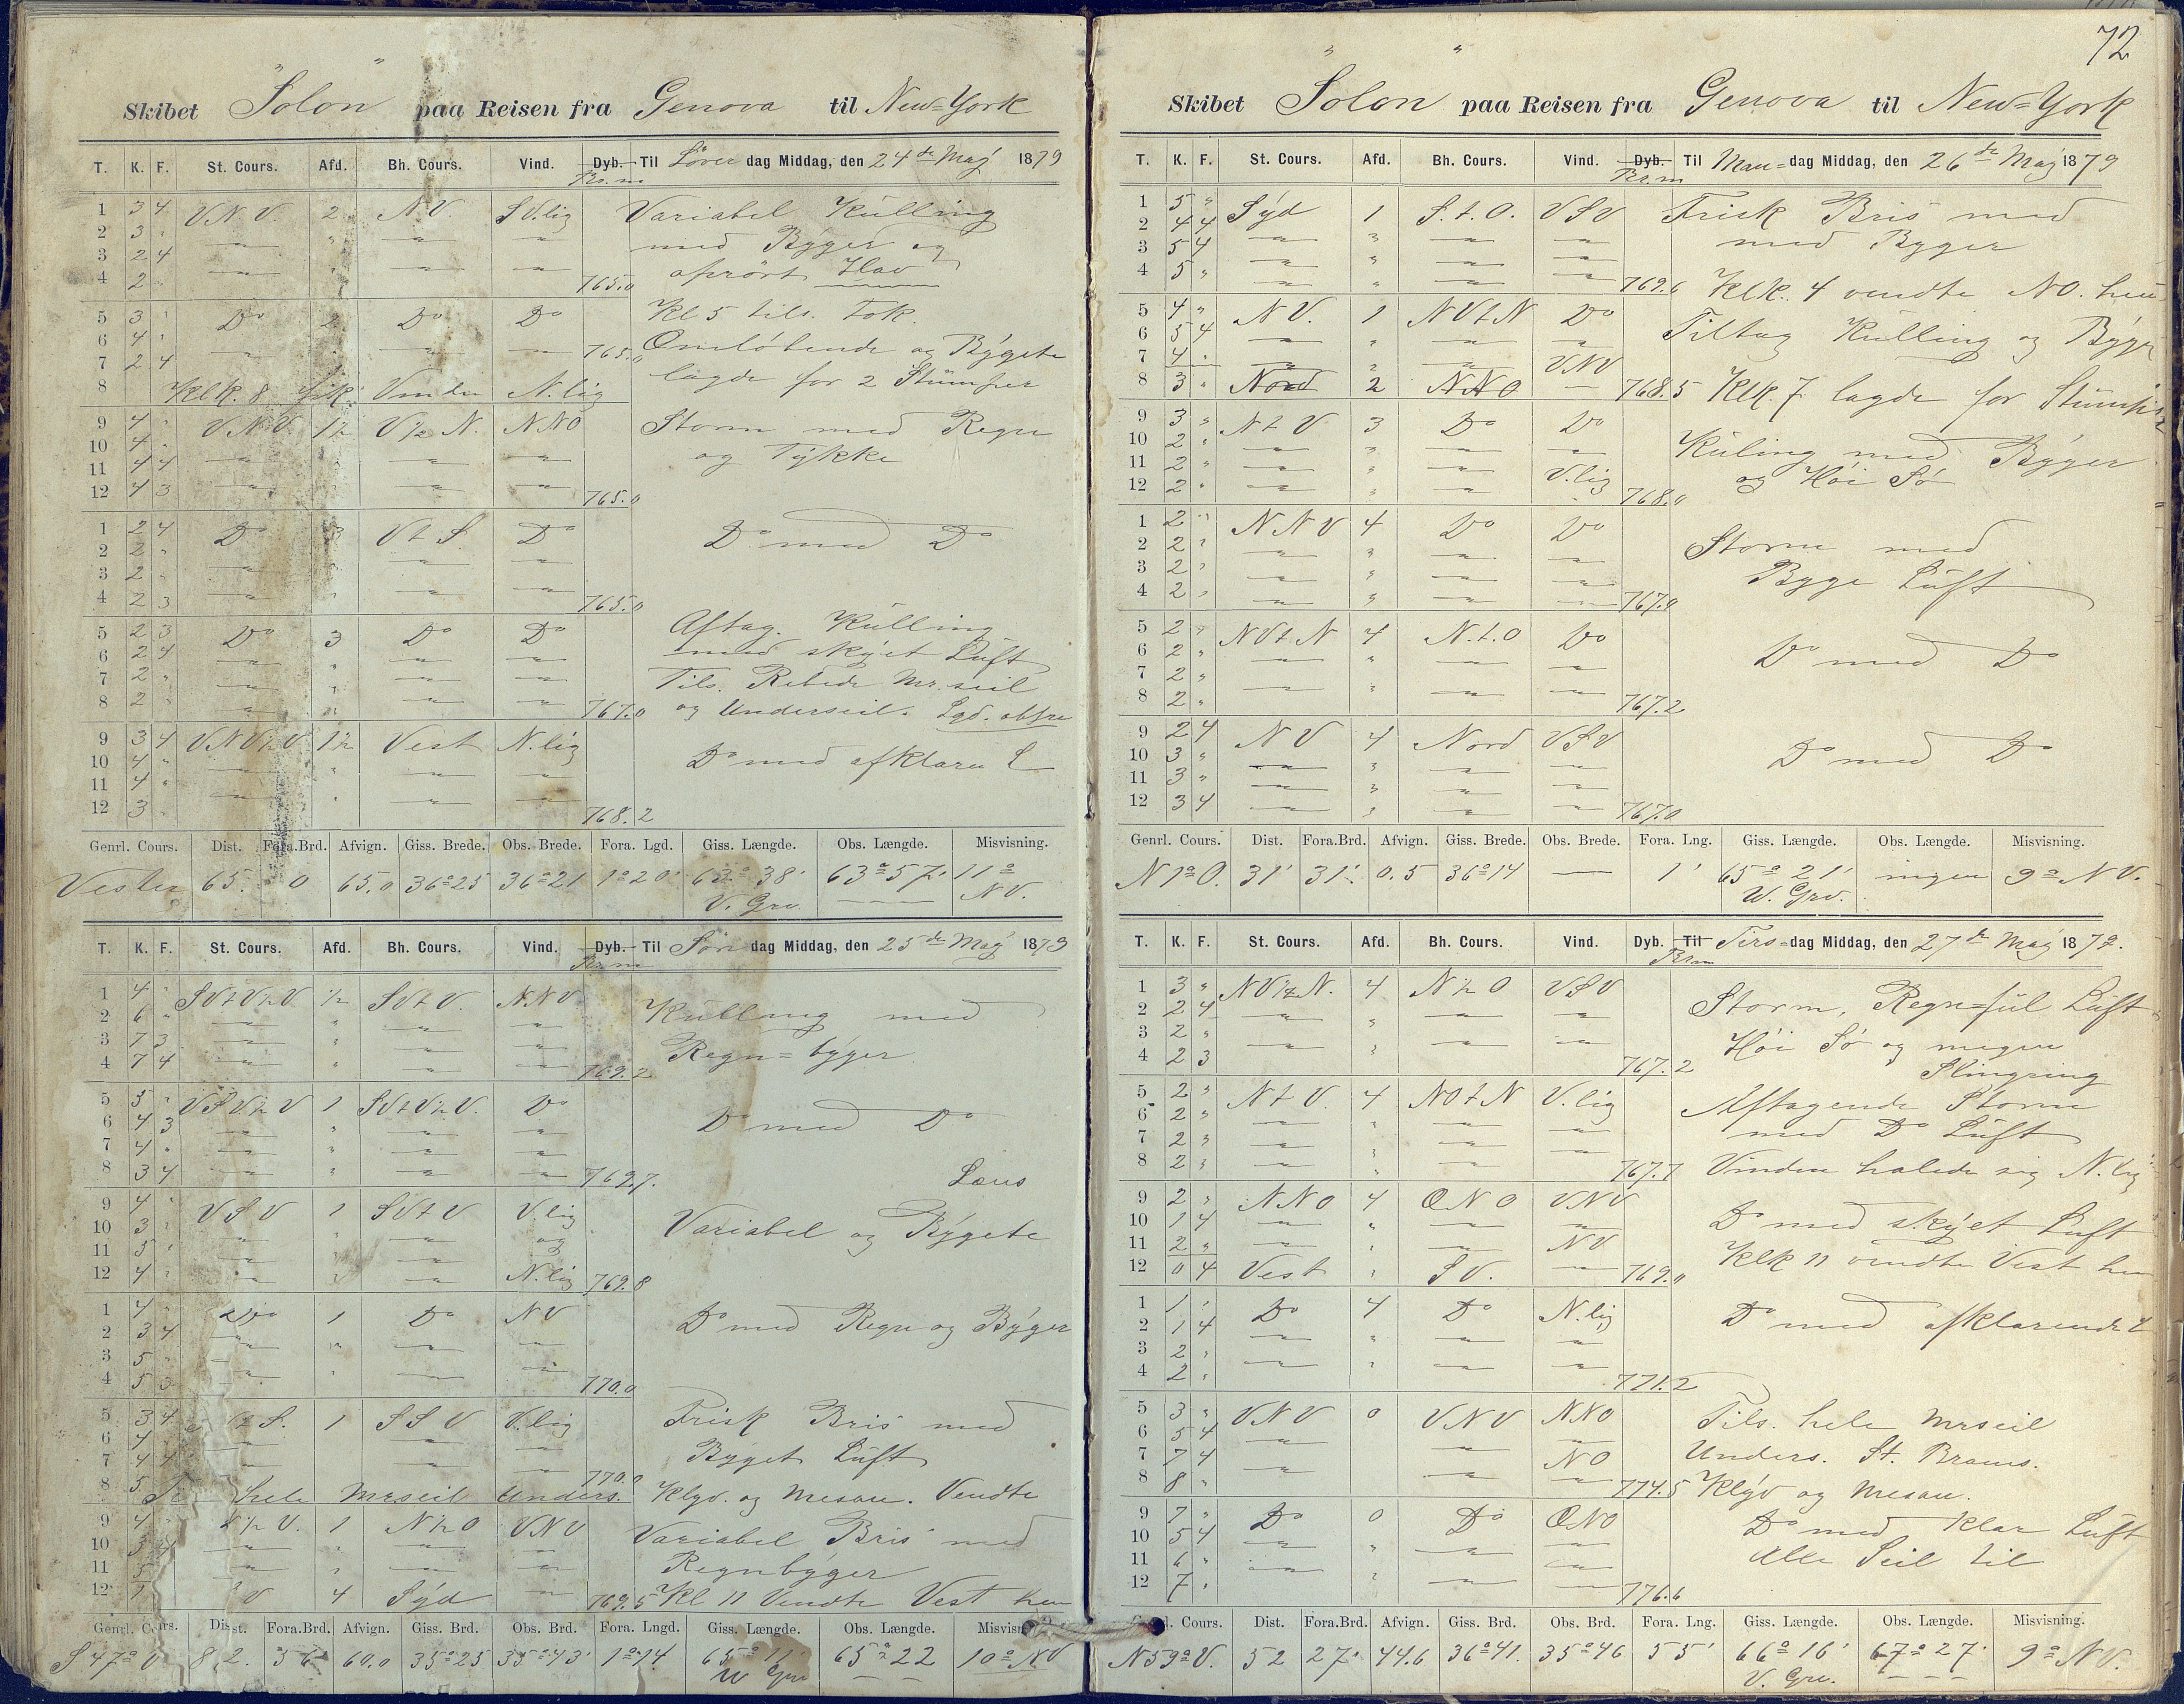 Skibet "Solon" paa Reisen fra Genova til New=York
T. K. F. St. Cours. Afd. Bh. Cours. Vind. Dyb. Til Løver dag Middag, den 24de Maj 1879
Br.m
1 3 4 V.N.V. 2 N.V. S.V.lig Variabel Külling
2 3 " med Byger og
3 2 4 oprört Hav
4 2 " 765.0
5 3 " Do 2 Do Do Kl 5 tils. Fok.
6 4 " Omløbende og Bÿgete
7 2 4 765.0 lagde for 2 Stümper
8 Klk. 8 fik Vinden N.lig
9 4 " V.N.V. 1½ V½N. NNO Storm med Regn
10 4 " og Tÿkke
11 4 4
12 4 3 765.0
1 2 4 Do 3 V t S. Do Do med Do
2 2 "
3 2 "
4 2 3 765.0
5 2 3 Do 3 Do Do Aftag. Külling
6 2 4 med skÿet Lüft
7 2 " Tils. Rebede Mr.seil
8 2 " 767.0 og Underseil.
9 3 4 V.N.V½V. 1½ Vest N.lig Do med afklaren L
10 4 "
11 4 "
12 3 " 768.2
Genrl. Cours. Dist. Fora.Brd. Afvign. Giss. Brede. Obs. Brede. Fora. Lgd. Giss. Længde. Obs. Længde. Misvisning.
Vester 65. 0 65.0 36°25 36°21 1°20' 63° 38' 63°57' 11° NV.
V. Grv.
T. K. F. St. Cours. Afd. Bh. Cours. Vind. Dyb. Til Søn dag Middag, den 25de Maj 1879
Br.m
1 4 " SVtV½V. ½ SVtV. N.N.V. Külling med
2 6 " Regn=bÿger
3 7 3
4 7 4 769.2
5 5 " VSV½V 1 SVtV½V. Do Do med Do
6 4 3
7 4 "
8 3 4 769.7. Læns
9 4 " VSV 1 SVtV V.lig Variabel og Bÿgete
10 3 " og
11 5 "
12 4 " N.lig 769.8
1 4 " Do 1 Do NV Do med Regn og Bÿger
2 3 4
3 5 "
4 5 3 770.0
5 3 4 ½ S. 1 SSV V.lig Frisk Bris med
6 4 " Bÿget Lüft
7 4 4 770.0
8 5 hele Mrseil Unders. Klÿv. og Mesan. Vendte
9 4 " ½ V. 1 N½O VNV Variabel Bris med
10 3 4 Regnbÿger
11 5
12 1 V 4 Sÿd 769.5 Kl 11 Vendte Vest hen
Genrl. Cours. Dist. Fora.Brd. Afvign. Giss. Brd. Obs. Brd. Fora. Lngd. Giss. Længde. Obs. Længde. Misvisn
S.47°V 82. 56 60.0 35°25 35°43' 1°14 65°11' 65°22 10° NV
W Grv
72
Skibet "Solon" paa Reisen fra Genova til New=York
T. K. F. St. Cours. Afd. Bh. Cours. Vind. Dyb. Til Man=dag Middag, den 26de Maj 1879
Br.m
1 5 " Sÿd 1 S.t.O. VSV Frisk Bris med
2 4 4 med Byger
3 5 4
4 5 " 769.6 Klk. 4 vendte NO. hen
5 4 " NV. 1 NVtN Do Tiltag Külling og Bÿger
6 5 4
7 4 " VNV
8 3 " Nord 2 NNO 768.5 Klk. 7 lagde for Stümper
9 3 " NtV 3 Do Do Küling med Bÿger
10 2 " og Höi Sö
11 2 " V.lig
12 2 " 768.0
1 2 " NNV 4 Do Do Storm med
2 2 " Byge Lüft
3 2 "
4 2 " 767.0
5 2 " NVtN 4 N.t.O Do Do med Do
6 2 "
7 2 "
8 2 " 767.2
9 2 4 NV 4 Nord VSV Do med Do
10 3 "
11 3 "
12 3 4 767.0
Genrl. Cours. Dist. Fora.Brd. Afvign. Giss. Brede. Obs. Brede. Fora. Lng. Giss. Længde. Obs. Længde. Misvisning.
N 1°O. 31' 31'. 0.5 36°14 — 1' 65°21' ingen 9° NV.
W. Grv.
T. K. F. St. Cours. Afd. Bh. Cours. Vind. Dyb. Til Tirs=dag Middag, den 27de Maj 1879.
Br.m
1 3 " NV¼N. 4 N½O VSV Storm, Regn=fül Lüft
2 2 4 Höi Sö og megen
3 2 " Slingring
4 2 3 767.2
5 2 " NtV. 4 NOtN V.lig Aftagende Storm
6 2 " med Do Lüft
7 2 3
8 2 " 767.7 Vinden halede sig N.lig
9 2 " NNO 4 ONO VNV Do med skÿet Lüft
10 1 4
11 2 " NV Klk 11 vendte Vest hen
12 0 4 Vest " SV. 769.0
1 1 " Do 4 Do N.lig Do med afklarende L
2 1 4
3 2 "
4 2 " 771.2
5 3 " VNV 0 VNV NNO Tils. hele Mrseil
6 5 4 Unders. St. Brams.
7 7 4 NO
8 8 " 774.5 Klÿv og Mesan.
9 7 " Do 0 Do ONO Do med klar Lüft
10 5 4 Alle Seil til
11 6 "
12 7 " 776.6
Cours. Dist. Fora.Brd. Afvign. Giss. Brd. Obs. Brd. Fora. Lng. Giss. Længde. Obs. Længde. Misvisning.
N59°V. 52 27' 44.6 36°41. 35°46 55' 66°16' 67°27' 9° NV.
V. Grv.